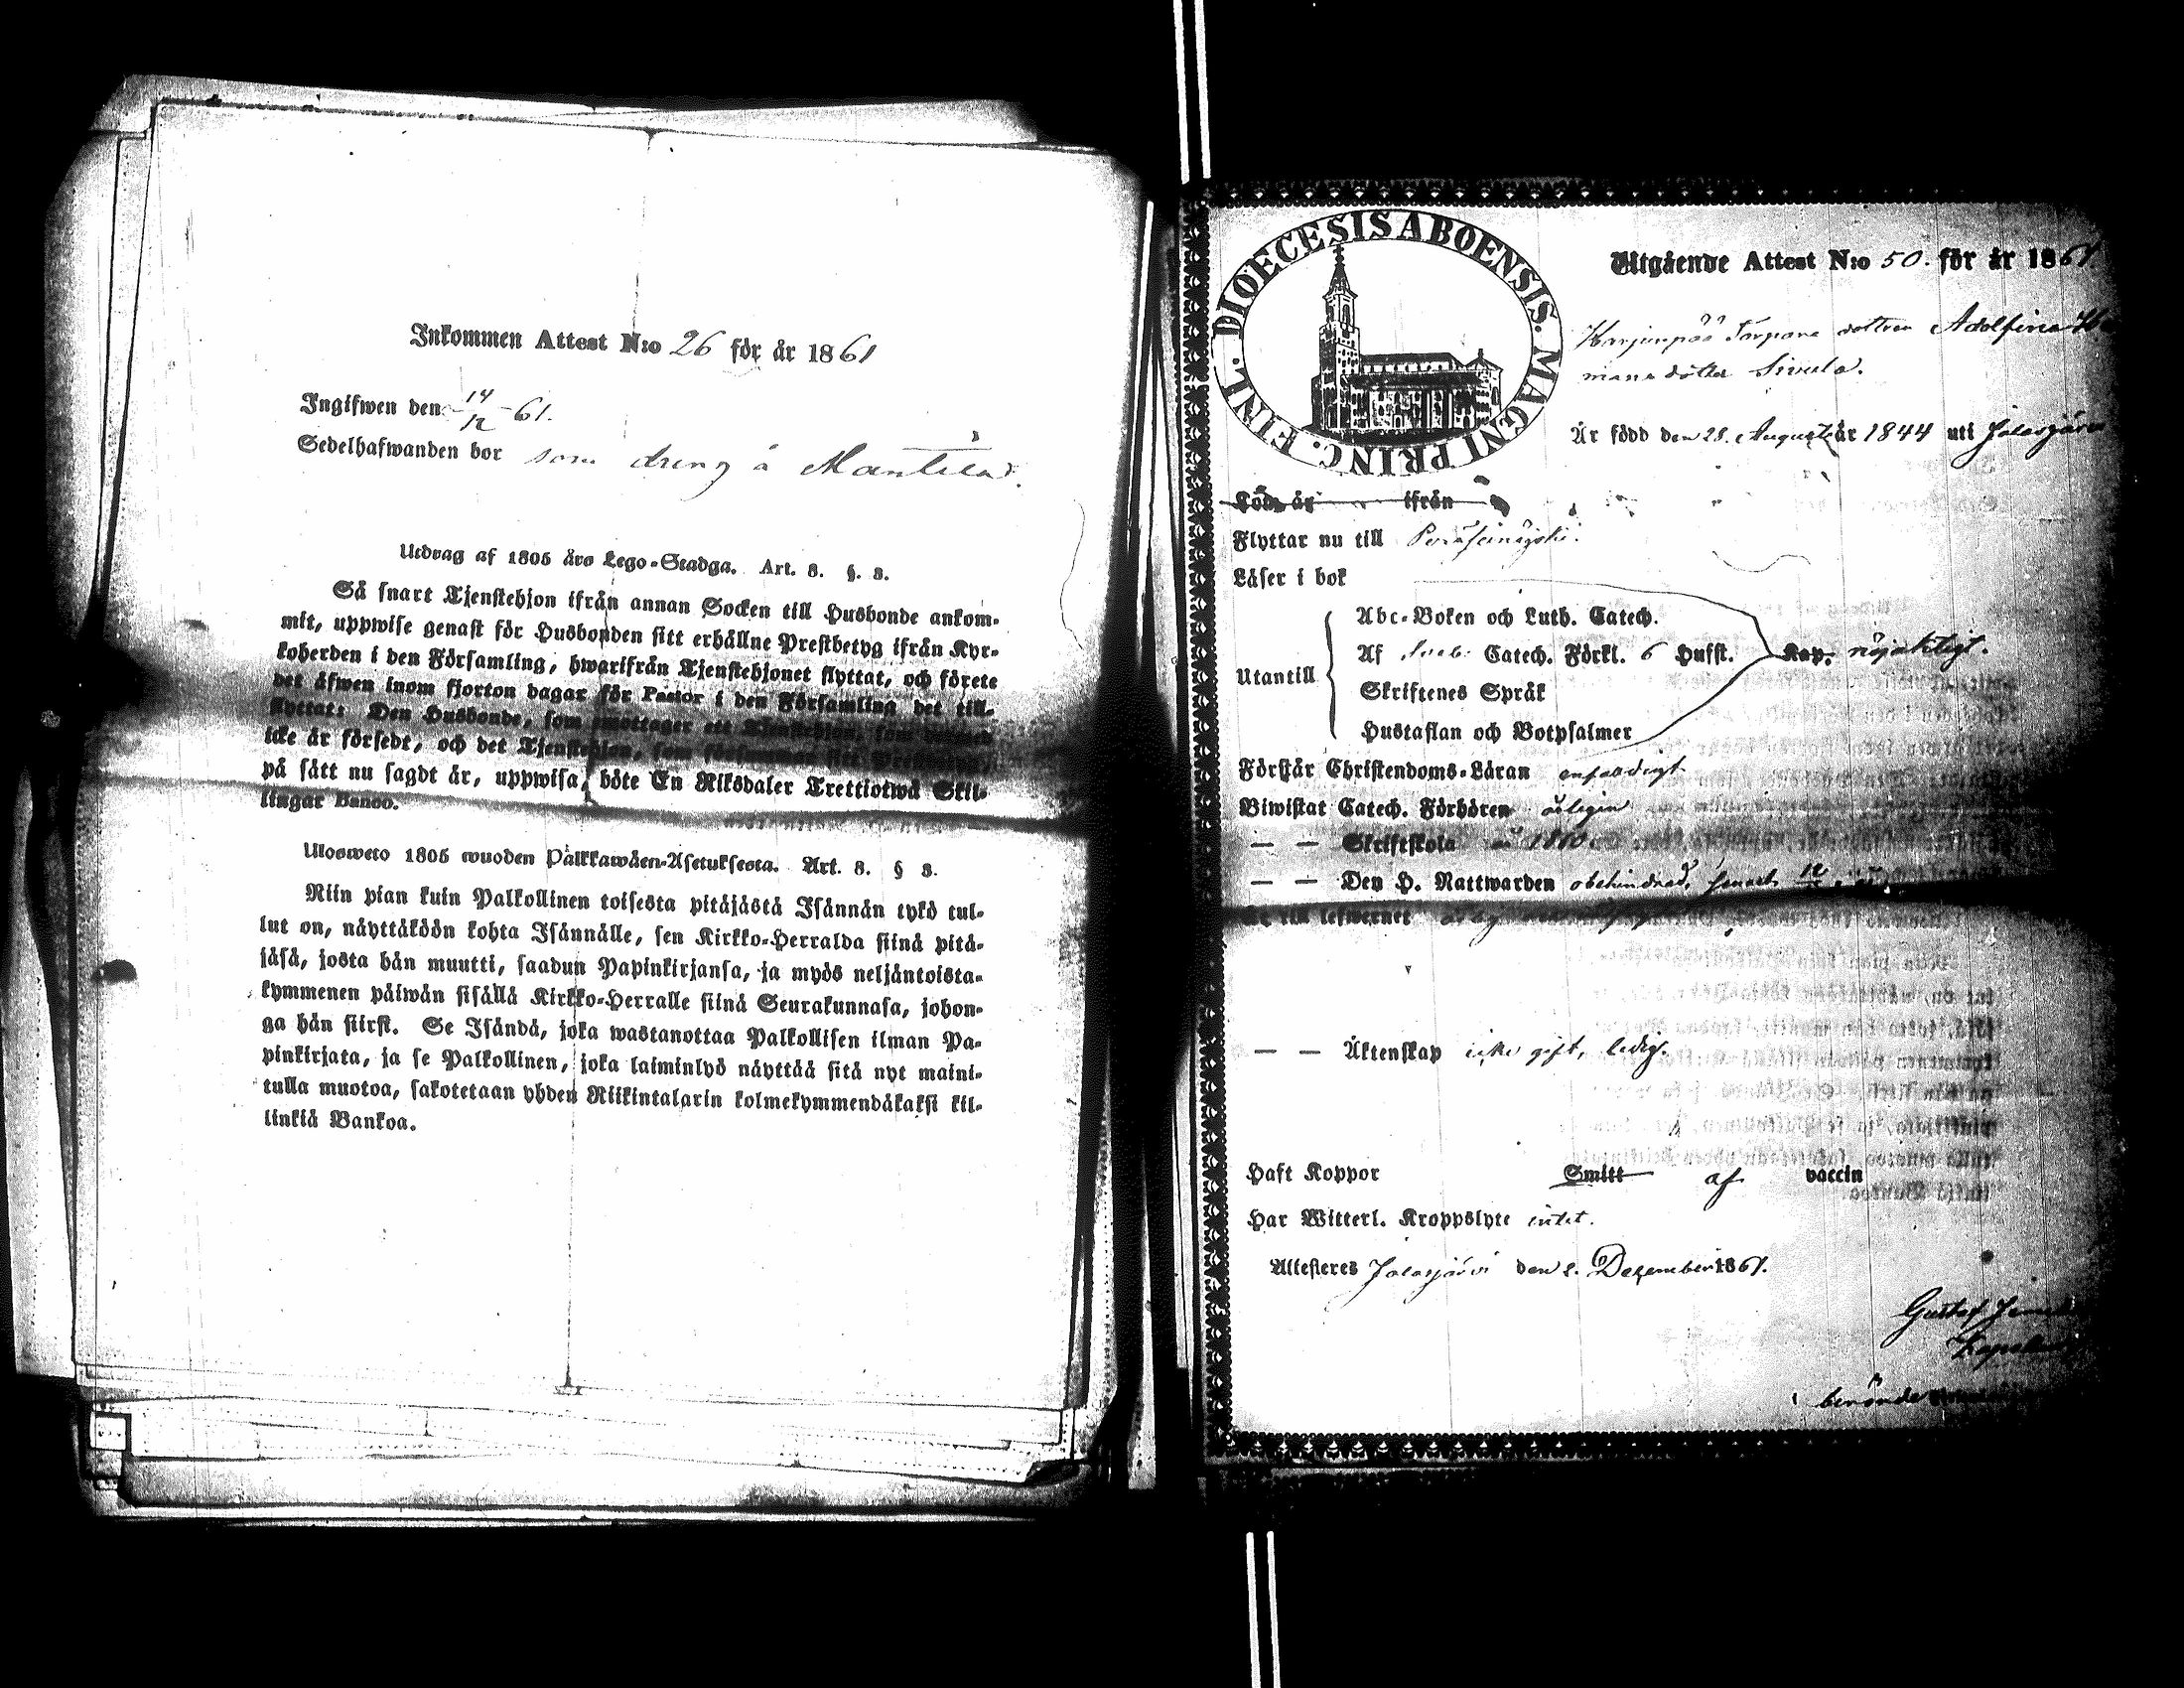 Inkommen Attest N:o 26 för år 1861
Ingifwen den 14/12 61.
Sedelhafwanden bor som dreng å Mantila.
Utdrag af 1805 års Lego-Stadga. Art. 8. §. 3.
Så snart Tjenstehjon ifrån annan Socken till Husbonde ankom-
mit, uppwise genast för Husbonden sitt erhållne Prestbetyg ifrån Kyr-
koherden i den Församling, hwarifrån Tjenstehjonet flyttat, och förete
det äfwen inom fjorton dagar för Pastor i den Församling det till-
flyttat: Den Husbonde, som emottager ett Tjenstehjon, som
icke är försedt, och det Tjenstehjon, som
på sätt nu sagdt är, uppwisa, böte En Riksdaler Trettiotwå Skil-
lingar Banco.
Ulosweto 1805 wuoden Palkkawäen-Asetuksesta. Art. 8. § 3.
Niin pian kuin Palkollinen toisesta pitäjästä Isännän tykö tul-
lut on, näyttäköön kohta Isännälle, sen Kirkko-Herralda siinä pitä-
jäsä, josta hän muutti, saadun Papinkirjansa, ja myös neljäntoista-
kymmenen päiwän sisällä Kirkko-Herralle siinä Seurakunnasa, johon-
ga hän siirst. Se Isändä, joka wastanottaa Palkollisen ilman Pa-
pinkirjata, ja se Palkollinen, joka laiminlyö näyttää sitä nyt maini-
tulla muotoa, sakotetaan yhden Riikintalarin kolmekymmendäkaksi kil-
linkiä Bankoa.
DIOECESIS ABOENSIS. MAGNI PRINC. FINL.
Utgående Attest N:o 50. för år 1861.
dottren Adolfina
dotter Sivula.
Är född den 28. Augusti år 1844 uti Jalasjärvi
Född år ifrån
Flyttar nu till Peräseinäjoki.
Läser i bok
Abc-Boken och Luth. Catech.
Af Sveb. Catech. Förkl. 6 Hufst. Kap. nöjaktigt.
Utantill
Skriftenes Språk
Hustaflan och Botpsalmer
Förstår Christendoms-Läran enfaldigt
Biwistat Catech. Förhören årligen
— — Skriftskola år 1860.
— — Den H. Nattwarden obehindrad, senast
Är till lefwernet
— — Äktenskap icke gift, ledig.
Haft Koppor Smitt af vaccin
Har Witterl. Kroppslyte intet.
Attesteres Jalasjärvi den 2. Dezember 1861.
Gustaf